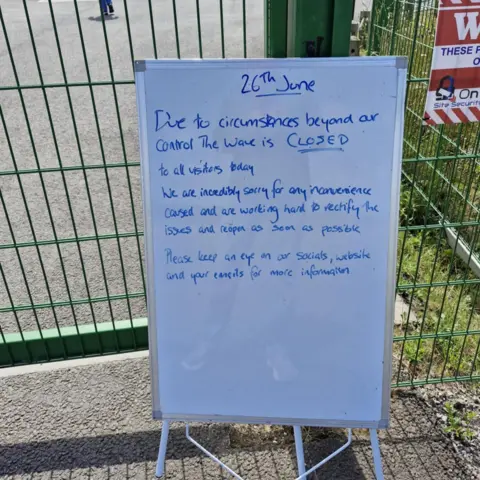 26th June
Due to circumstances beyond our
control The Wave is CLOSED
to all visitors today
We are incredibly sorry for any inconvenience
caused and are working hard to rectify the
issues and reopen as soon as possible
Please keep an eye on our socials, website
and your emails for more information
W
THESE P
O
On
Site Security